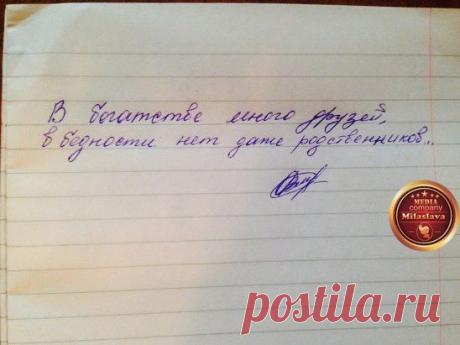 В богатстве много друзей,
в бедности нет даже родственников..
MEDIA
company
Milaslava
postila.ru